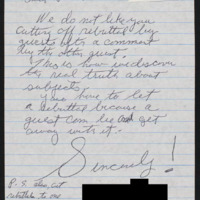 We do not like you
cutting off rebuttal by
guests with a comment
by the other guest.
This is how we discover
the real truth about
subjects.
You have to let
a rebuttal because a
guest com by and get
away with it.
Sincerely!
P.S. also cut
to one